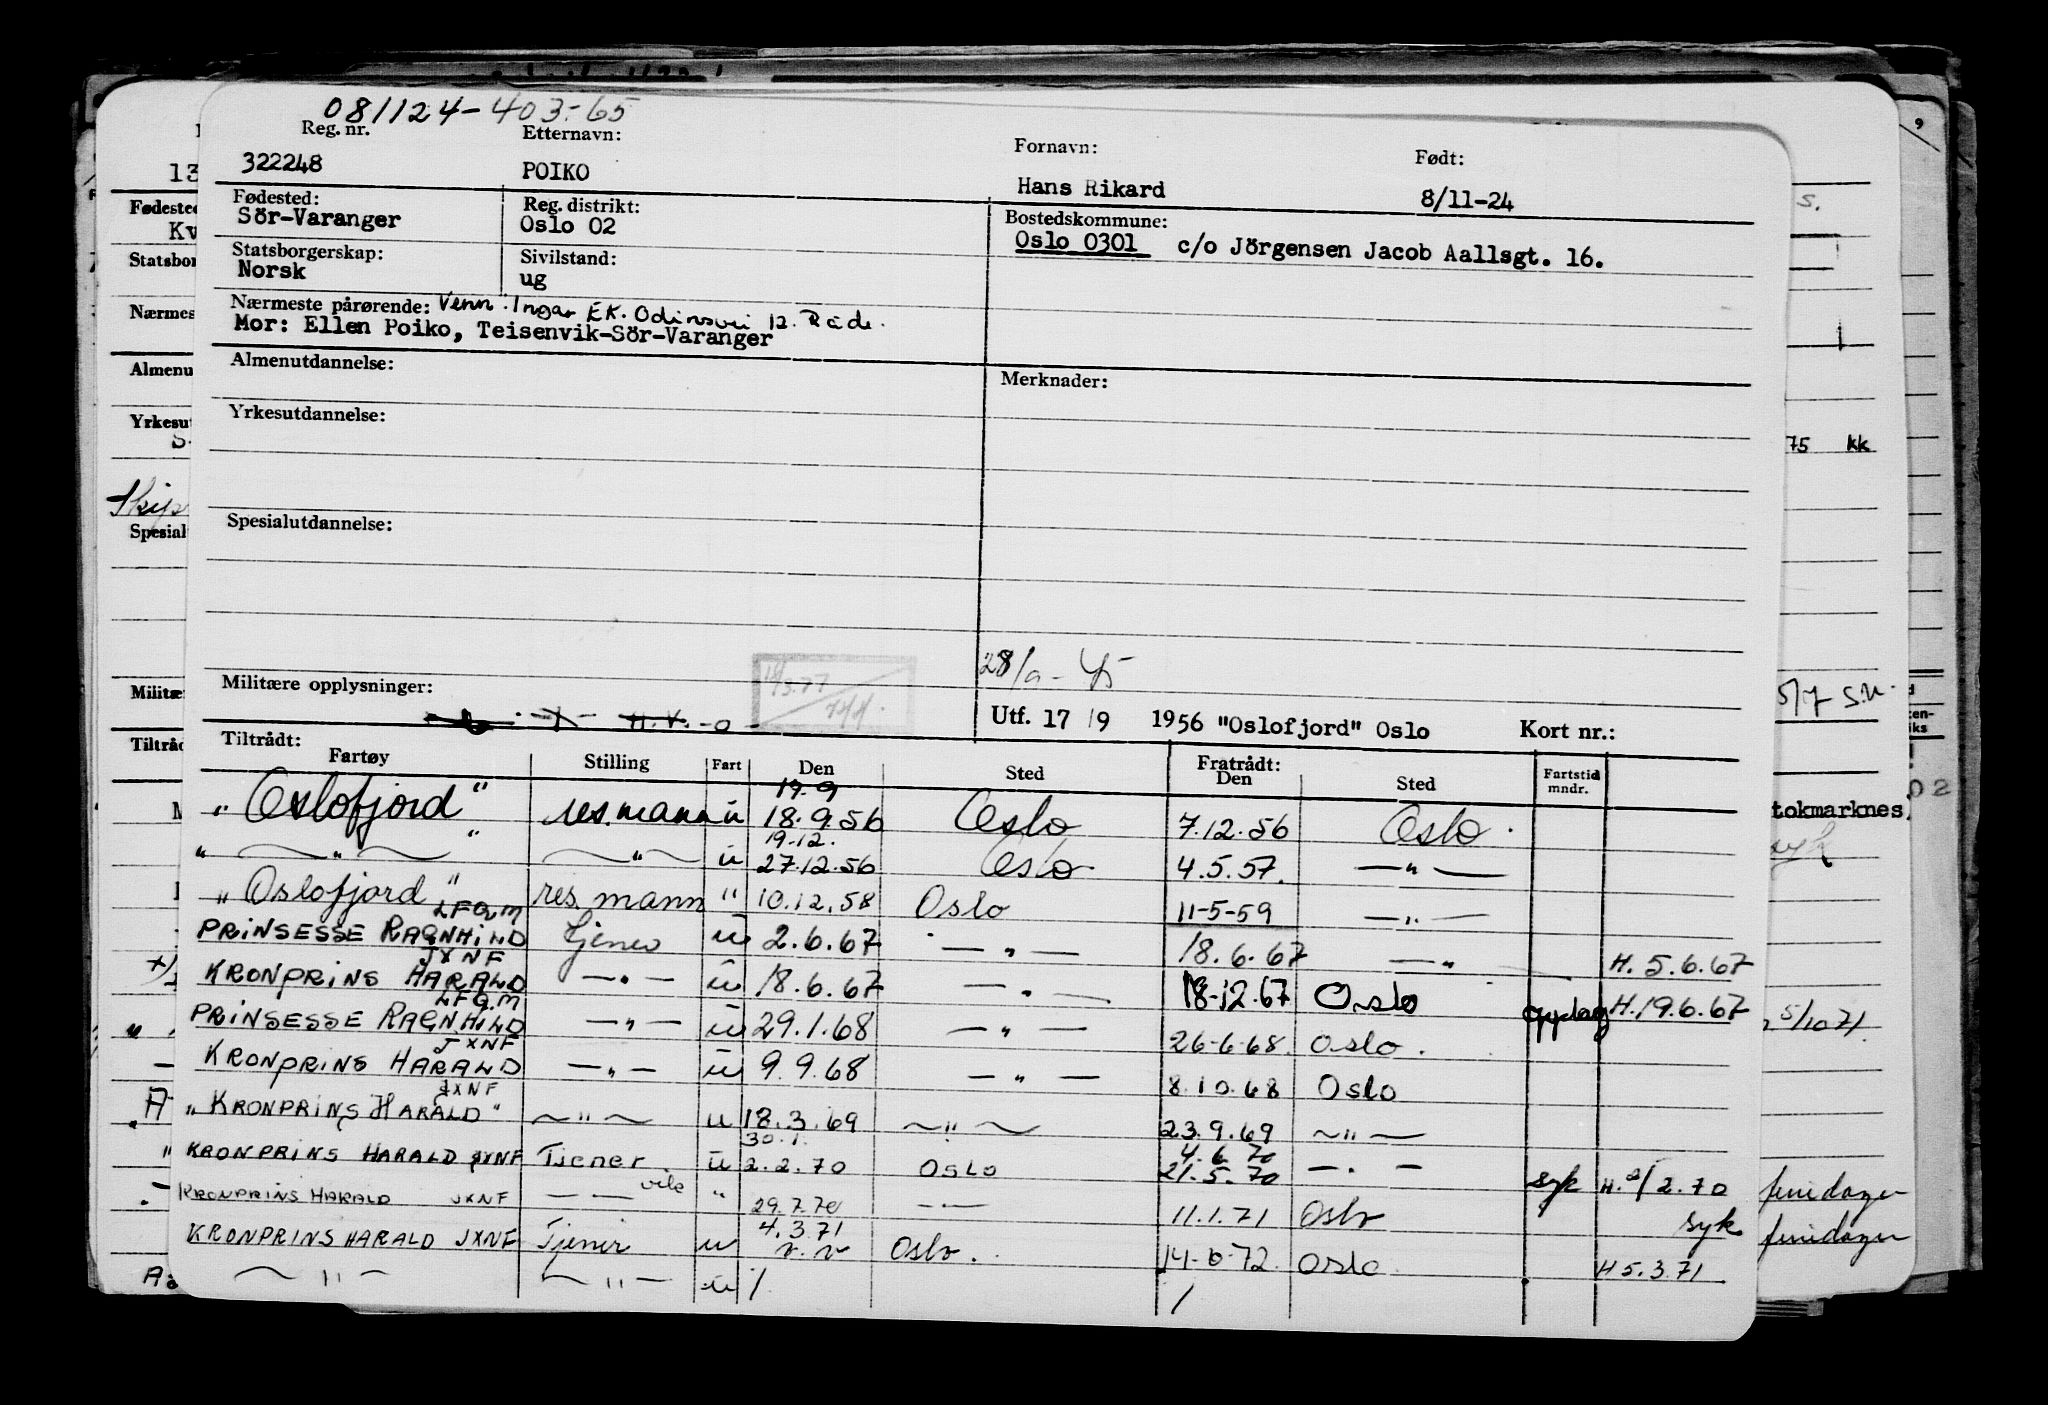 081124-403-65
Reg. nr. Etternavn: Fornavn: Født:
322248 POIKO Hans Rikard 8/11-24
Fødested: Reg. distrikt: Bostedskommune:
Sör-Varanger Oslo 02 Oslo 0301 c/o Jörgensen Jacob Aallsgt. 16.
Statsborgerskap: Sivilstand:
Norsk ug
Nærmeste pårørende: Venn: Ingar EK. Odinsvei 12. Råde.
Mor: Ellen Poiko, Teisenvik-Sör-Varanger
Almenutdannelse: Merknader:
Yrkesutdannelse:
75 kk
Spesialutdannelse:
Militære opplysninger:
5/7 S.U.
Utf. 17/9 1956 "Oslofjord" Oslo Kort nr.:
Tiltrådt: Fratrådt:
Fartøy Stilling Fart Den Sted Den Sted Fartstid mndr.
17.9
"Oslofjord" res.mann u 18.9.56 Oslo 7.12.56 Oslo
19.12.
" — " — " — " — u 27.12.56 Oslo 4.5.57. — " —
"Oslofjord" res. mann " 10.12.58 Oslo 11-5-59 — " —
LFQM
PRINSESSE RAGNHILD Tjener u 2.6.67 — " — 18.6.67 — " — H. 5.6.67
JXNF
KRONPRINS HARALD — " — u 18.6.67 — " — 18-12.67 Oslo oppdag H.19.6.67
LFQM
PRINSESSE RAGNHILD — " — u 29.1.68 — " — 26-6-68. Oslo.
JXNF
KRONPRINS HARALD — " — u 9.9.68 — " — 8.10.68 Oslo
JXNF
"KRONPRINS HARALD" — " — u 18.3.69 — " — 23.9.69 — " —
30.1. 4.6.70
KRONPRINS HARALD JXNF Tjener u 2.2.70 OSLO 21.5.70 — " — syk H. 2/2.70
KRONPRINS HARALD JXNF — " — vik " 29.7.70 — " — 11.1.71 Oslo syk
4.3.71
KRONPRINS HARALD JXNF Tjener u Oslo. 14-6-72 OSLO H 5.3.71
— " — — " — u / /
Fødested
Statsbor
Nærmes
Almenu
Yrkesut
Skip
Spesial
Militær
Tiltråd
tokmarknes
5/10 71.
feriedager
feriedager